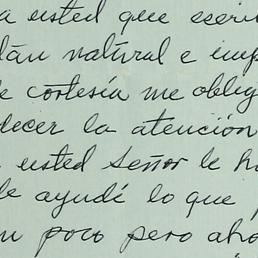 a usted que escri
tán natural e imp
e cortesía me oblig
decer la atención
usted señor le h
le ayudé lo que
un poco pero aho